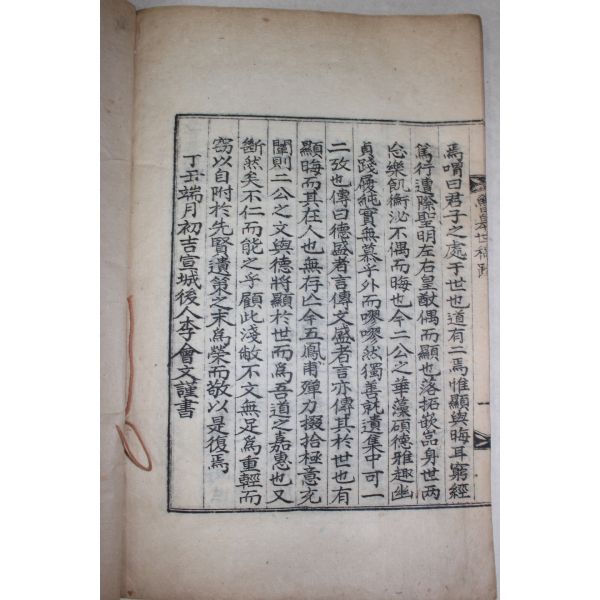 焉喟曰君子之處于世也道有二焉惟顯與晦耳窮經
篤行遭際聖明左右皇猷偶而顯也落拓嵌嵓身世兩
忘樂飢衡泌不偶而晦也今二公之華藻碩德雅趣幽
貞踐履純實無慕乎外而嘐嘐然獨善就遺集中可一
二攷也傳曰德盛者言傳文盛者言亦傳其於世也有
顯晦而其在人也無存亡今五鳳甫殫力掇拾極意充
闡則二公之文與德將顯於世而爲吾道之嘉惠也又
斷然矣不仁而能之乎顧此淺敝不文無足爲重輕而
竊以自附於先賢遺藁之末爲榮而敬以是復焉
丁丑端月初吉宣城後人李會文謹書
世稿跋
一